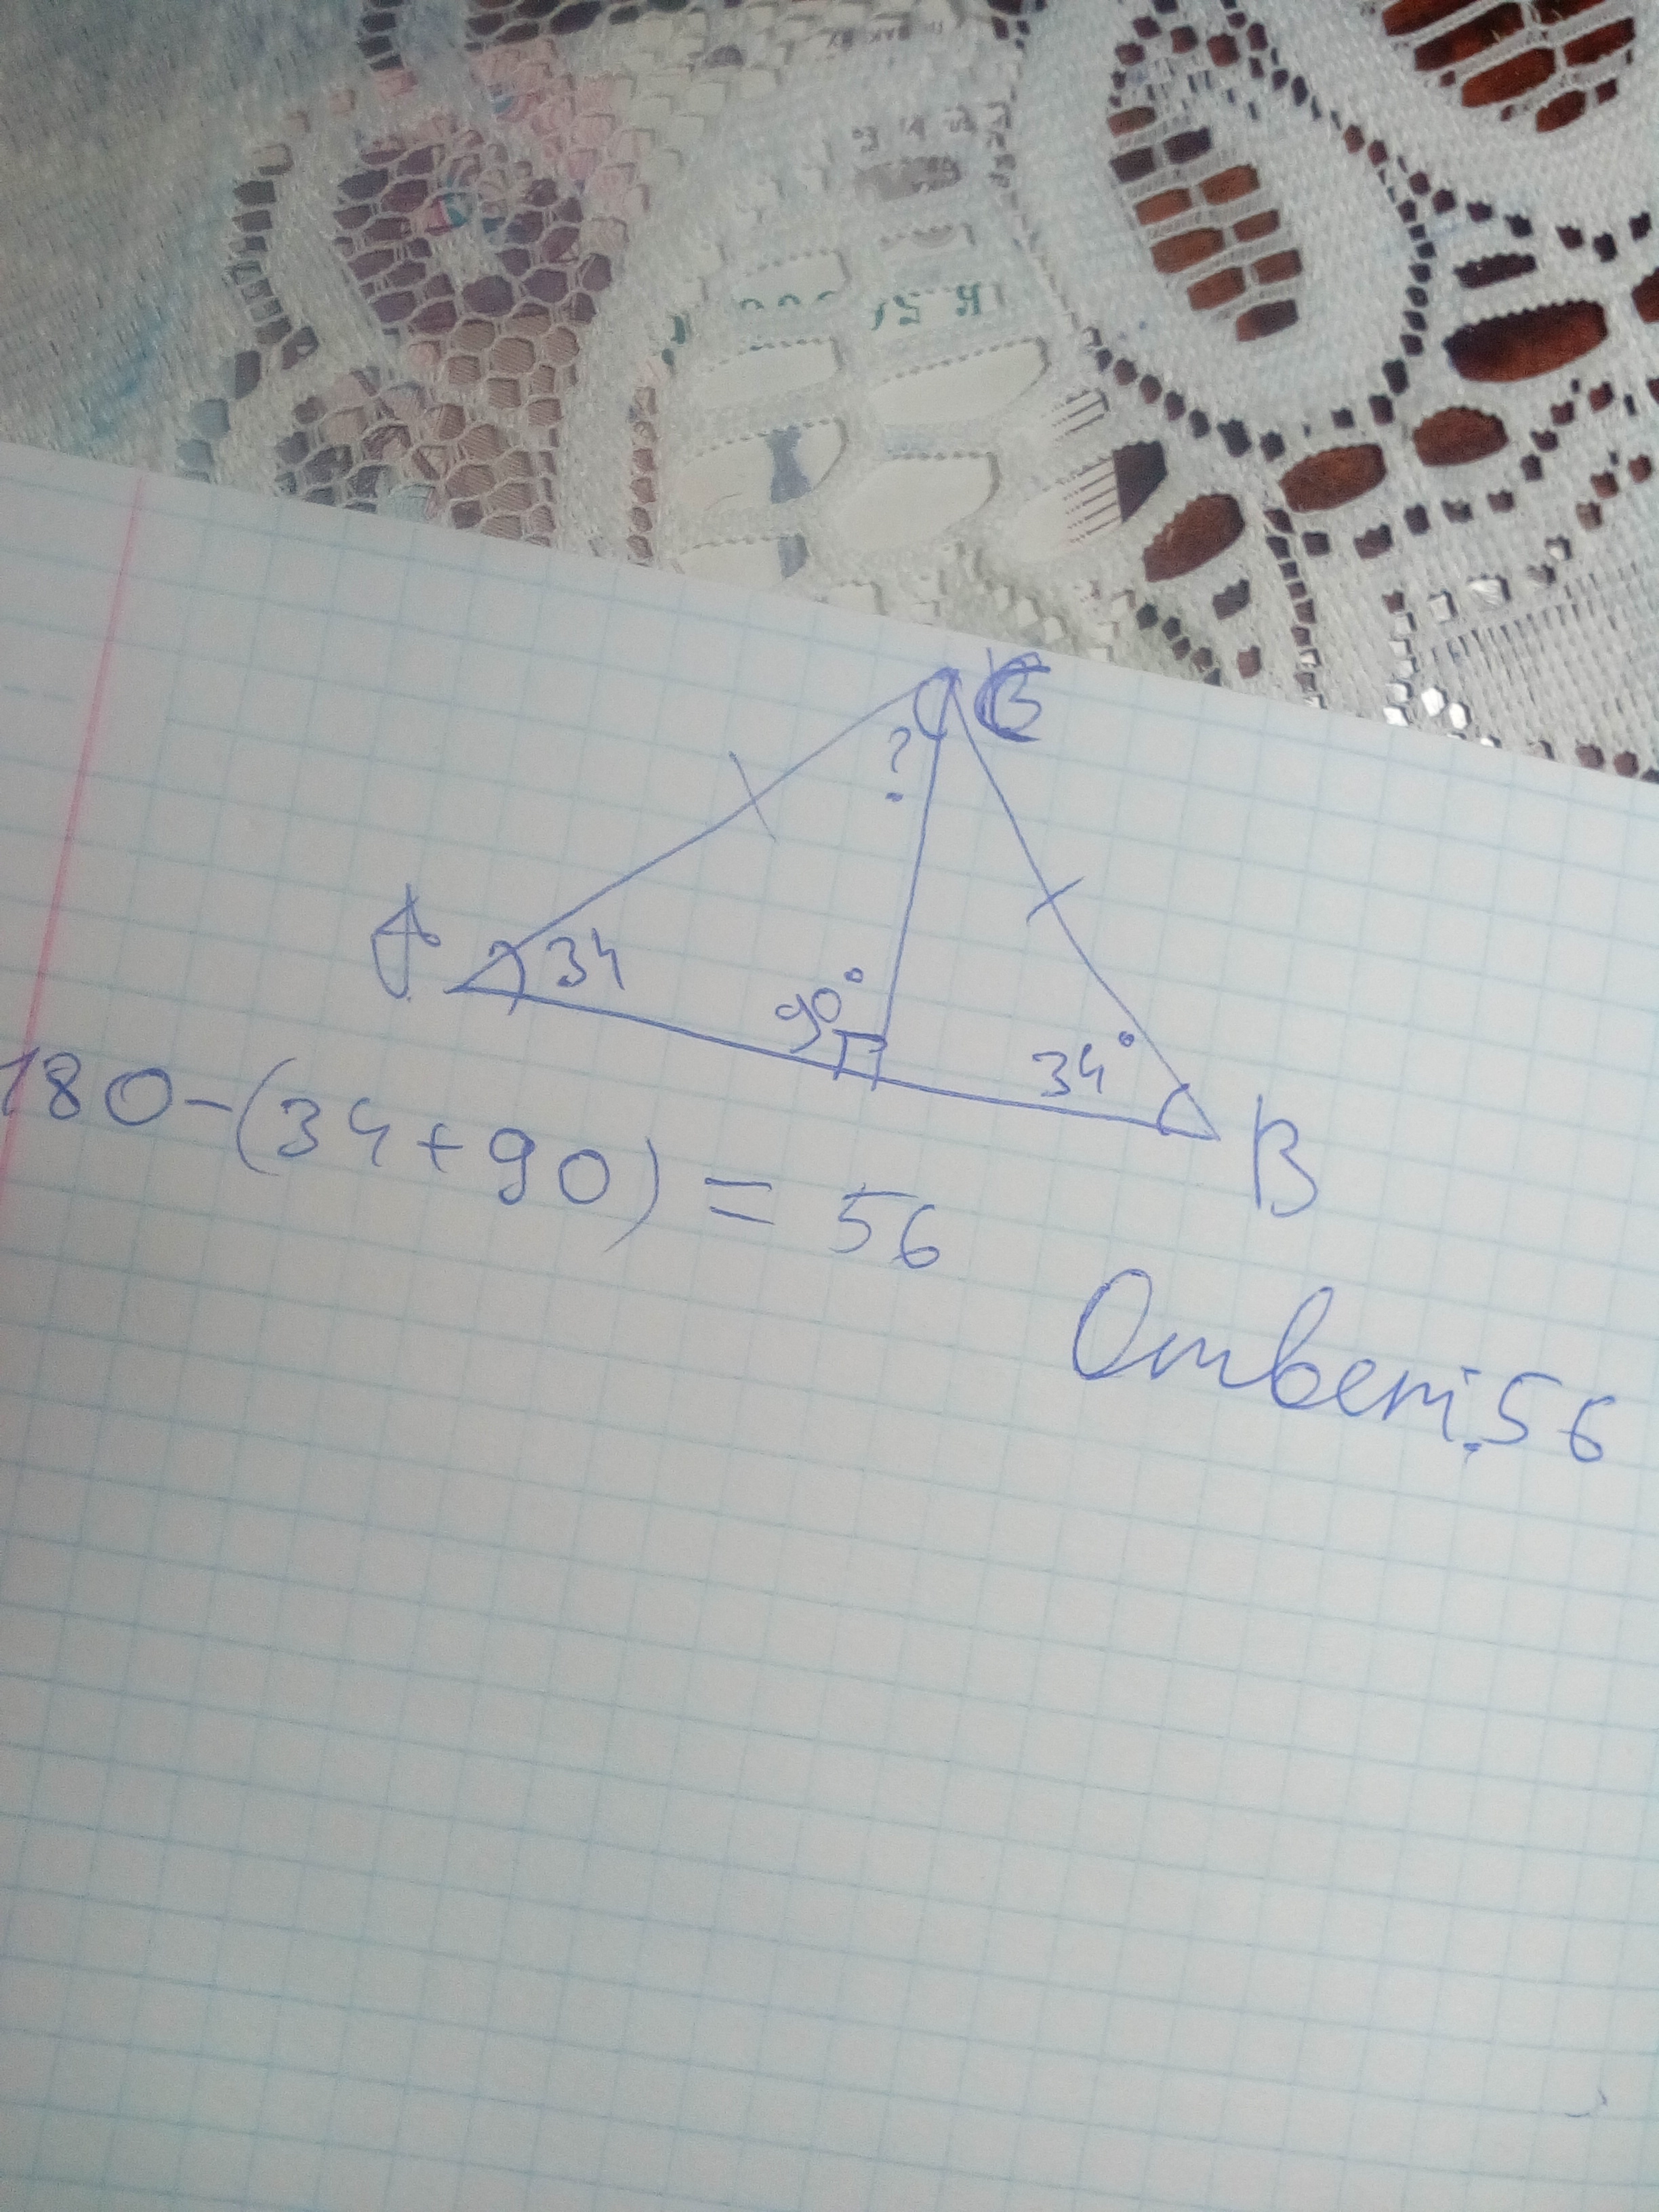 C
?
A 34
90°
34°
B
180-(34+90)=56
Ответ:56